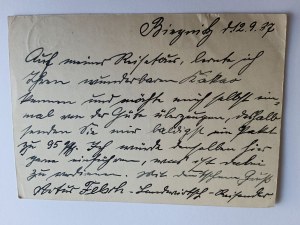 Biegnitz d 12.9.37
Auf meiner Reisetour, lernte ich
Ihren wunderbaren Kakao
kennen und möchte mich selbst ein-
mal von der Güte überzeugen, deshalb
senden Sie mir baldigst ein Paket
zu 95 Pf. Ich würde denselben hier
gern einführen, was ist dabei
zu verdienen. Mit deutschem Gruß
Artur - Landwirtsch. - Reisender